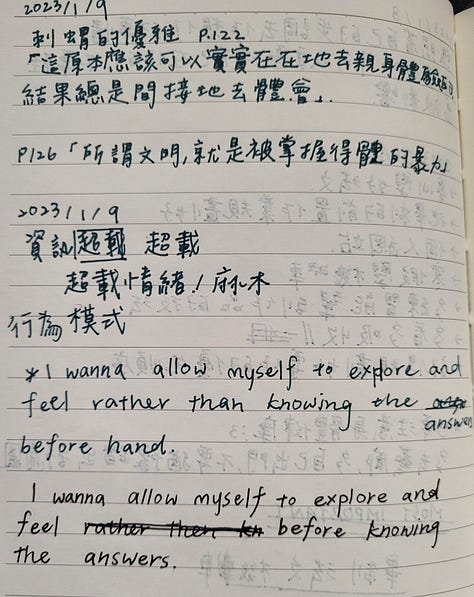 2023/1/9
刺蝟的優雅 P.122
「這原本應該可以實實在在地去親身體驗的
結果總是間接地去體會」
P126「所謂文明,就是被掌握得體的暴力」
2023/1/9
資訊超載 超載
超載情緒!麻木
行為模式
*I wanna allow myself to expore and
feel rather than knowing the
answers
before hand.
I wanna allow myself to explore and
feel rather then kn before knowing
the answers.